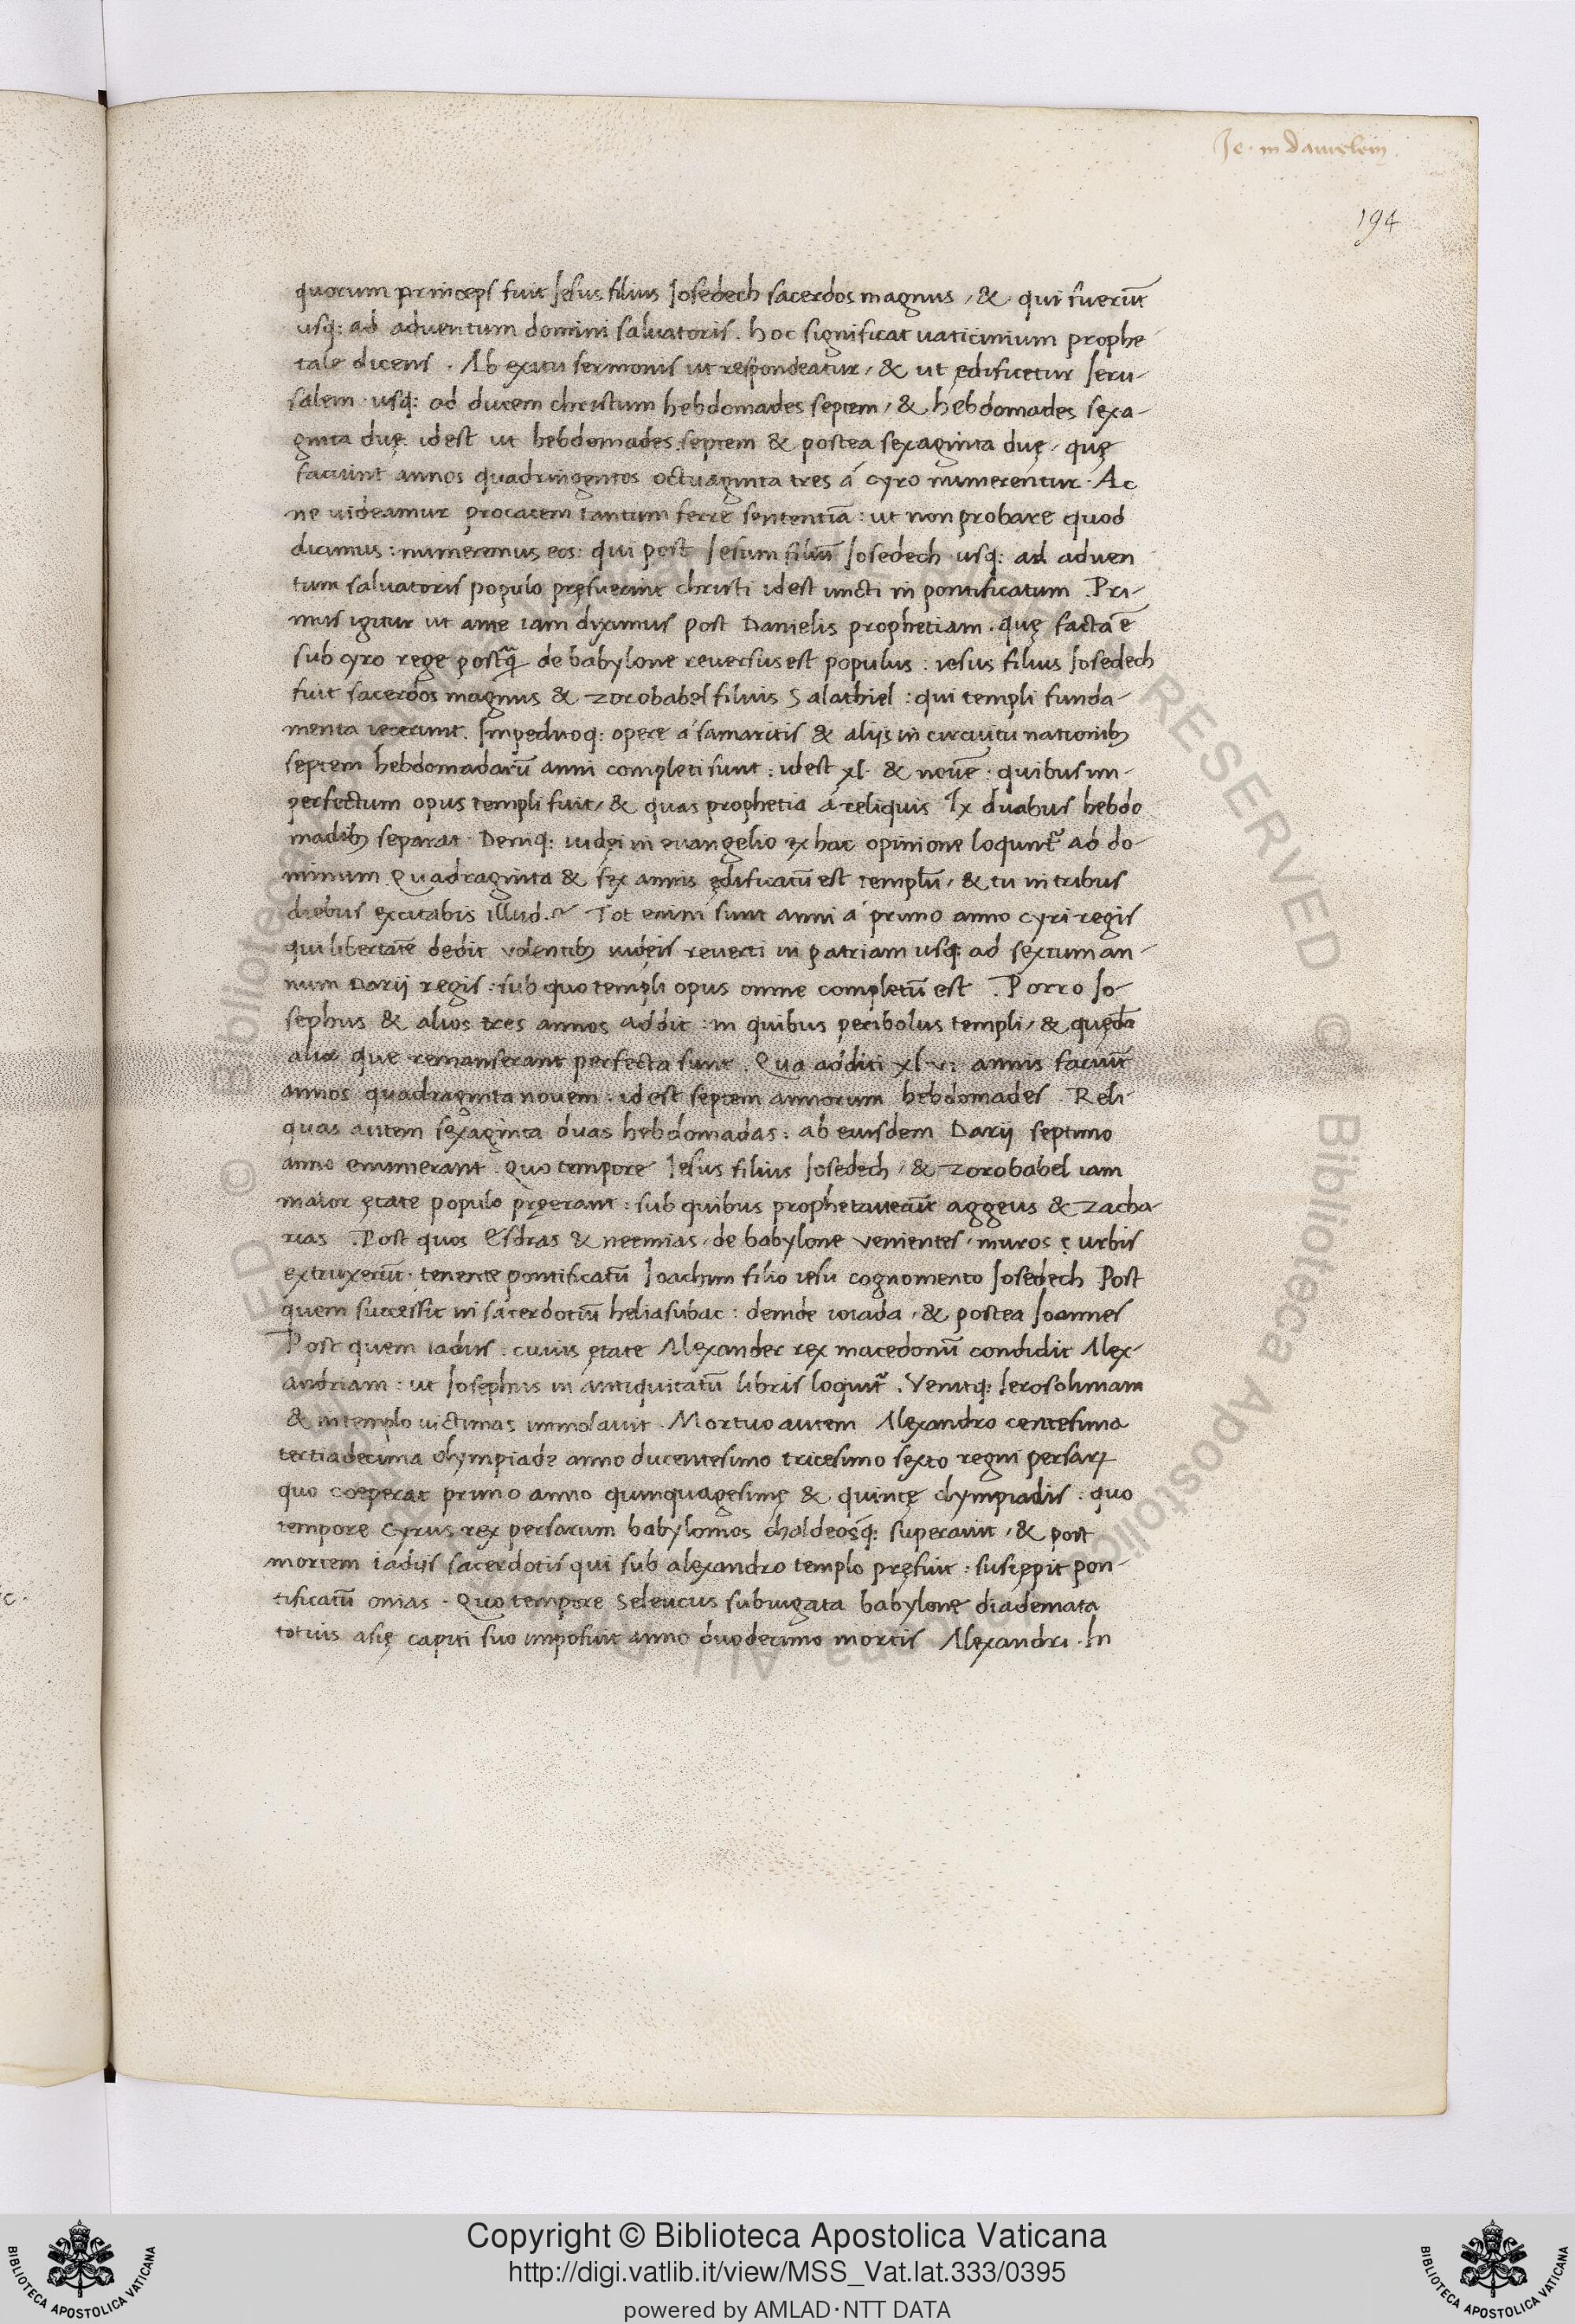 Ie. in danielem
194
quorum princeps fuit Iesus filius Iosedech sacerdos magnus, & qui fuerūt
usq: ad adventum domini salvatoris. hoc significat vaticinium prophe-
tale dicens. Ab exitu sermonis ut respondeatur, & ut ędificetur Ieru-
salem usq: ad ducem christum hebdomades septem, & hebdomades sexa-
ginta duę. idest ut hebdomades septem & postea sexaginta duę, quę
faciunt annos quadringentos octuaginta tres á cyro numerentur. Ac
ne uideamur procacem tantum ferre sententiā: ut non probare quod
dicimus: numeremus eos: qui post Iesum filiū Iosedech usq: ad adven
tum salvatoris populo pręfuerint christi idest uncti in pontificatum. Pri-
mus igitur ut ante iam diximus post Danielis prophetiam. quę facta ē
sub cyro rege postq̃ de babylone reversus est populus: iesus filius Iosedech
fuit sacerdos magnus & zorobabel filius Salathiel: qui templi funda-
menta iecerunt. Impeditoq: opere á samaritis & aliis in circuitu nationib;
septem hebdomadarū anni completi sunt: idest xl. & novē: quibus im-
perfectum opus templi fuit, & quas prophetia á reliquis lx duabus hebdo
madib; separat. Deniq: iudęi in evangelio ex hac opinione loqunt᷑ ad do-
minum. Quadraginta & sex annis ędificatū est templū, & tu in tribus
diebus excitabis illud.? Tot enim sunt anni á primo anno cyri regis
qui libertatē dedit volentib; iudęis reverti in patriam usq: ad sextum an-
num Darij regis: sub quo templi opus omne completū est. Porro Io-
sephus & alios tres annos addit: in quibus peribolus templi, & quędā
alia que remanserant perfecta sunt. Qua additi xlvi annis faciūt
annos quadraginta novem. idest septem annorum hebdomades. Reli-
quas autem sexaginta duas hebdomadas: ab eiusdem Darij septimo
anno enumerant. Quo tempore Iesus filius Iosedech, & zorobabel iam
maior ętate populo pręerant: sub quibus prophetaverūt aggeus & zacha-
rias. Post quos Esdras & neemias, de babylone venientes, muros ę urbis
extruxerūt. tenente pontificatū Ioachim filio iesu cognomento Iosedech Post
quem successit in sacerdotiū heliasubac: deinde ioiada, & postea Ioannes
Post quem iadus: cuius ętate Alexander rex macedonū condidit Alex-
andriam: ut Iosephus in antiquitatū libris loquit᷑. Venitq: Ierosolimam
& in templo victimas immolavit. Mortuo autem Alexandro centesima
tertiadecima olympiade anno ducentesimo tricesimo sexto regni persarꝝ
quo coeperat primo anno quinquagesimę & quintę olympiadis: quo
tempore Cyrus rex persarum babylonios chaldeosq́: superavit, & post
mortem iadijs sacerdotis qui sub alexandro templo pręfuit: suscępit pon-
tificatū onias. Quo tempore Seleucus subiugata babylone diademata
totius asię capiti suo imposuit anno duodecimo mortis Alexandri. In
c.
© Biblioteca Apostolica Vaticana ALL RIGHTS RESERVED © Biblioteca Apostolica Vaticana ALL RIGHTS RESERVED
Copyright © Biblioteca Apostolica Vaticana
http://digi.vatlib.it/view/MSS_Vat.lat.333/0395
powered by AMLAD·NTT DATA
BIBLIOTECA APOSTOLICA VATICANA
BIBLIOTECA APOSTOLICA VATICANA